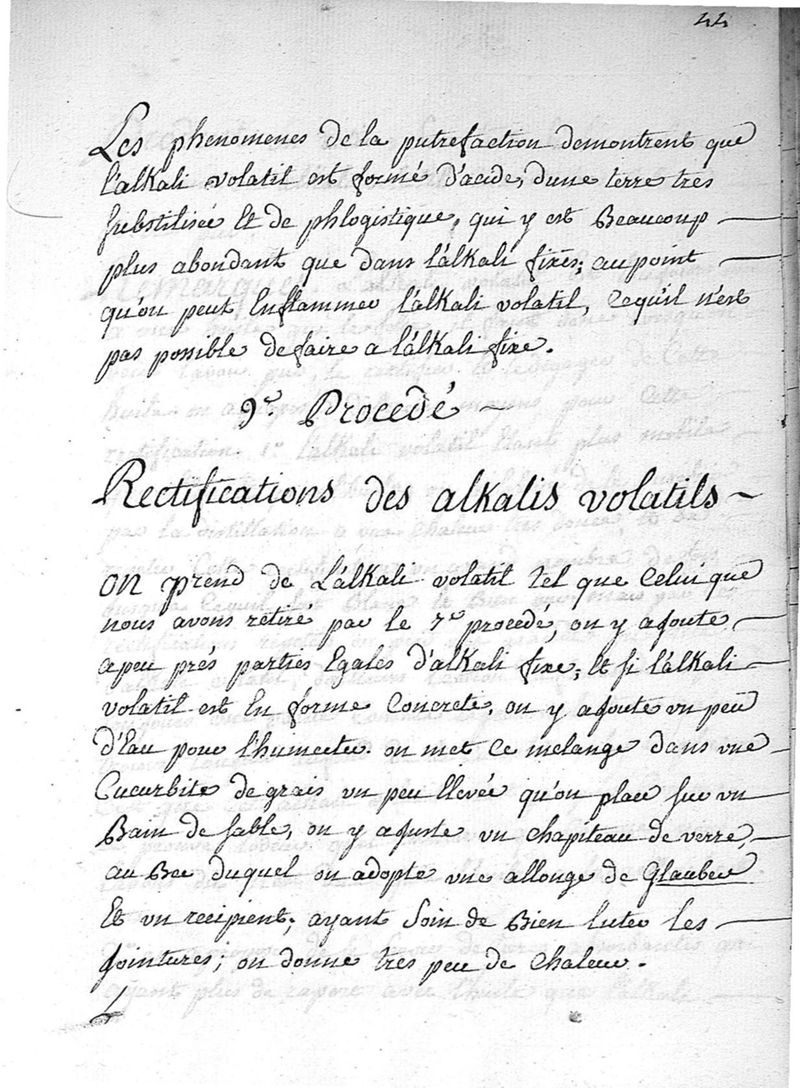 44
Les phenomenes de la putrefaction demontrent que
l'alkali volatil est formé d'acide, dune terre tres
subtilisée Et de phlogistique, qui y est Beaucoup
plus abondant que dans l'alkali fixe; au point
qu'on peut Enflammer l'alkali volatil, Cequil n'est
pas possible defaire a l'alkali fixe.
9e Procedé
Rectifications des alkalis volatils
on prend de L'alkali volatil tel que Celui que
nous avons retiré par le 7e procedé, on y ajoute
apeu prés parties Egales d'alkali fixe; Et si l'alkali
volatil est En forme Concrete, on y ajoute un peu
d'Eau pour l'humecter. on met Ce melange dans une
Cucurbite de grais un peu Elevée qu'on place sur un
Bain de sable, on y ajuste un chapiteau de verre,
au Bec duquel on adopte une allonge de Glauber
Et un recipient; ayant Soin de Bien luter les
jointures; on donne tres peu de Chaleur.